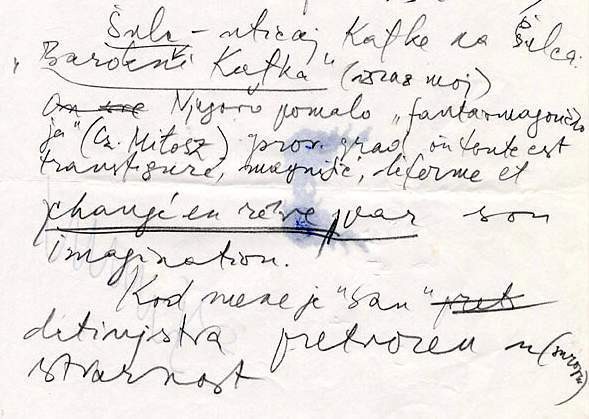 Šulc – uticaj Kafke na Šulca.
„Barokni Kafka" (izraz moj)
On sve Njegovo pomalo „fantazmagorič
ja" (Cz. Miłosz) prov. grad, où tout est
transfiguré, magnifié, déformé et
changé en rêve par son
imagination.
Kod mene je "san" pret
detinjstva pretvoren u (surovu)
stvarnost